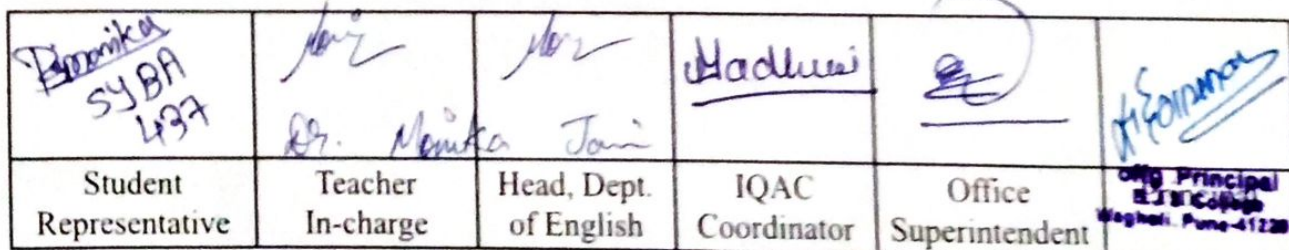 Bhoomika
SYBA
437
Dr. Monika Jain
Madhuri
Student
Representative
Teacher
In-charge
Head, Dept.
of English
IQAC
Coordinator
Office
Superintendent
Offg Principal
B J S College
Wagholi. Pune-41220